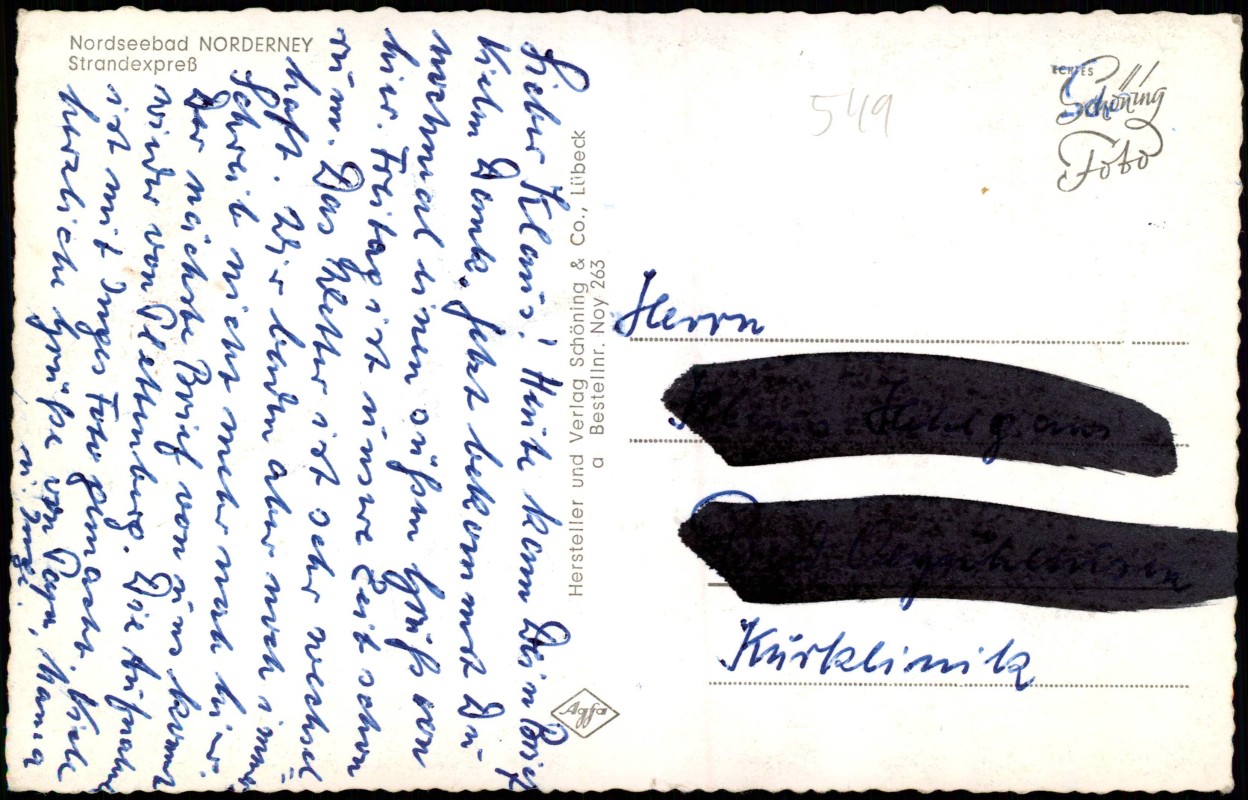 Nordseebad NORDERNEY
Strandexpreß
Lieber Klaus! Heute kam Dein Brief
Vielen Dank. Jetzt bekommst Du
nochmal einen süßen Gruß von
hier. Freitag ist unsere Zeit schon
rum. Das Wetter ist sehr wechsel
haft. Wir baden aber noch immer
Schreib nicht mehr nach hier.
Der nächste Brief von uns kommt
wieder von Plettenberg. Die Aufnahme
ist mit Inges Foto gemacht. Viele
herzliche Grüße von Papa, Mama
u. Inge.
Hersteller und Verlag Schöning & Co., Lübeck
a Bestellnr. Noy 263
Agfa
549
ECHTES
Schöning
Foto
Herrn
Kurklinik